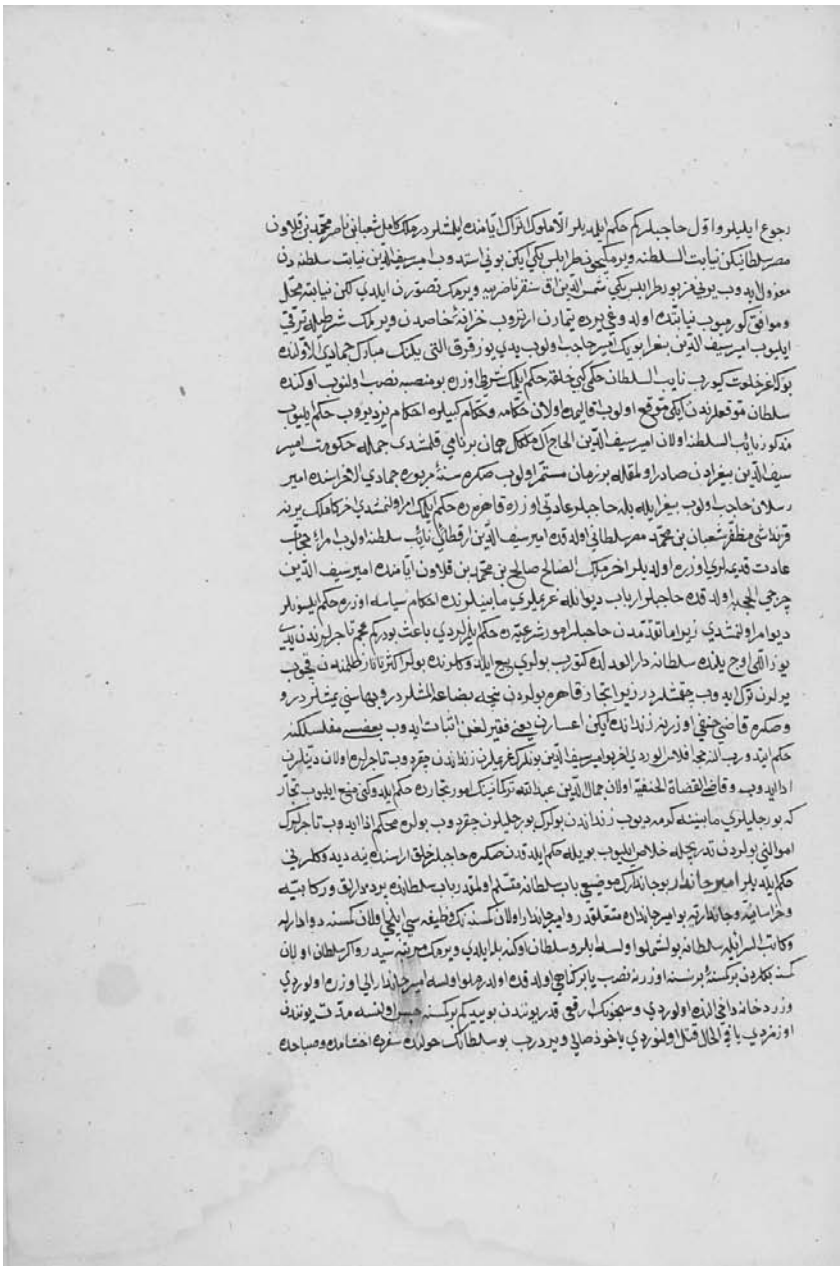 رجوع ایلیلر و اوّل حاجبلر كم حكم ایلدیلر الّا ملوك اتراك ایّامنده ایلمشلردر ملك كامل شعبان بن ناصر محمّد بن قلاون
مصر سلطانیكن نیابت السلطنه ویرمكیچون طرابلس بكی ایكن بونی استدوب امیر سیف الدین نیابت سلطنه دن
معزول ایدوب یرنی مزبور طرابلس بكی شمس الدین اق سنقر ناصری یه ویرمك تصوّرن ایلدی لكن نیابته محل
و موافق كورمیوب نیابتده اولدوغی یرده تیمارن ارتروب خزانهٔ خاصدن ویرلمك شرطیله ترقی
ایلیوب امیر سیف الدین بیغرا بویك امیر حاجب اولوب یدی یوز قرق التی یلنك مبارك جمادی الاوّلنده
بوكا غیر خلعت كیوروب نایب السلطان حكمی كبی خلقه حكم ایلمك شرطی اوزره بو منصبه نصب اولنوب اوكنده
سلطان موقعلرندن ایكی موقع اولوب اقالیمده اولان حكّامه و حكّام كبیلره احكام یزدیروب حكم ایلیوب
مذكور نائب السلطنه اولان امیر سیف الدین الحاج ال ملك همان بر نامی قلمشدی جمله حكومت امیر
سیف الدین بیغرادن صادر اولمقله بو زمان مستمر اولوب صكره سنهٔ مزبوره جمادی الاخراسنده امیر
رسلان حاجب اولوب بیغرا ایله بله حاجبلر عادتی اوزره قاهره ده حكم ایلمك امر اولنمشدی اخر كامل یرینه
قرنداشی مظفّر شعبان بن محمّد مصر سلطانی اولدقده امیر سیف الدین ارقطای نائب سلطنه اولوب امراء حجاب
عادت قدیملری اوزره اولدیلر اخر ملك الصالح صالح بن محمّد بن قلاون ایّامنده امیر سیف الدین
جرجی الحجبه اولدقده حاجبلر ارباب دیوانله غریملری مابینلرنده احكام سیاسه اوزره حكم ایلسونلر
دیو امر اولنمشدی زیرا ما تقدّمدن حاجبلر امور شرعیّه ده حكم ایلمزلردی باعث بودر كم عجم تاجرلرندن یدی
یوز اللی اوچ یلنده سلطانه دار العدلده كتورب بولری بیع ایلدوكلرنده بولر اكثر تاتار ظلمندن قچوب
یرلرن ترك ایدوب چقمشلردر زیرا تجار قاهره بولردن نیجه بضاعه المشلردر و بهاسنی یمشلردر و
و صكره قاضی حنفی اوزرینه زندانده ایكن اعسارن یعنی فقیرلغن اثبات ایدوب بعضی مفلسلكنه
حكم ایتدوروب النه حجّه لر الوردی اخر بو امیر سیف الدین بونلرك غریملرن زنداندن چقردوب تاجرلره اولان دینلرن
ادا ایدوب و قاضی القضاة الحنفیّه اولان جمال الدین عبد الله تركمانینك امور تجارده حكم ایلدوكنی منع ایلیوب تجّار
كه بورجلیلری مابینه كرمه دیوب زنداندن بولرك بورجلیلرن چقردوب بولره محكم اذا ایدوب تاجرلرك
اموالنی بولردن تدریجله خلاص ایلیوب بویله حكم ایلدقدن صكره حاجبلر خلق اراسنده ینه دیدوكلرنی
حكم ایلدیلر امیر جاندار بو جاندارك موضعی باب سلطانه متسلّم اولمقدر باب سلطانده برددارلق و ركابیّه
و خراسانیّه و جانداریّه بو امیر جانداره متعلّقدر و امیر جاندار اولان كسنه نك وظیفه سی ایلچی اولان كسنه دوادارله
و كاتب السرّ ایله سلطانه بولشملو اولسه لر و سلطان اوكنه بله ایلدی ویرمك مرتبه سیدر و اكر سلطان اولان
كسنه بكلردن بر كسنهٔ بر نسنه اوزرینه نصب یا بر كناهی اولدقده اولدرملو اولسه امیر جاندار الی اوزره اولوردی
و زردخانه داخی النده اولوردی و سجونك ارفعی قدر یونندن بو ییدی كم بر كسنه حبس اولنسه مدّت یونندن
اوزنمزدی یا فی الحال قتل اولنوردی یاخوذ صالی ویرردب بو سلطانك حولنده سفرده اختشامده و صباحده